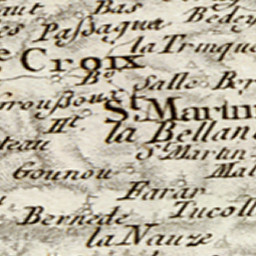 aut Bas
Bedey
es Paſsaque
la Trinque
Croix
Be Salle Ber
Grouſsoux
St. Martin
Ht. la Bellan
teau St. Martin
Gounou Mal
Farar
Bernede Tucoll
la Nauze